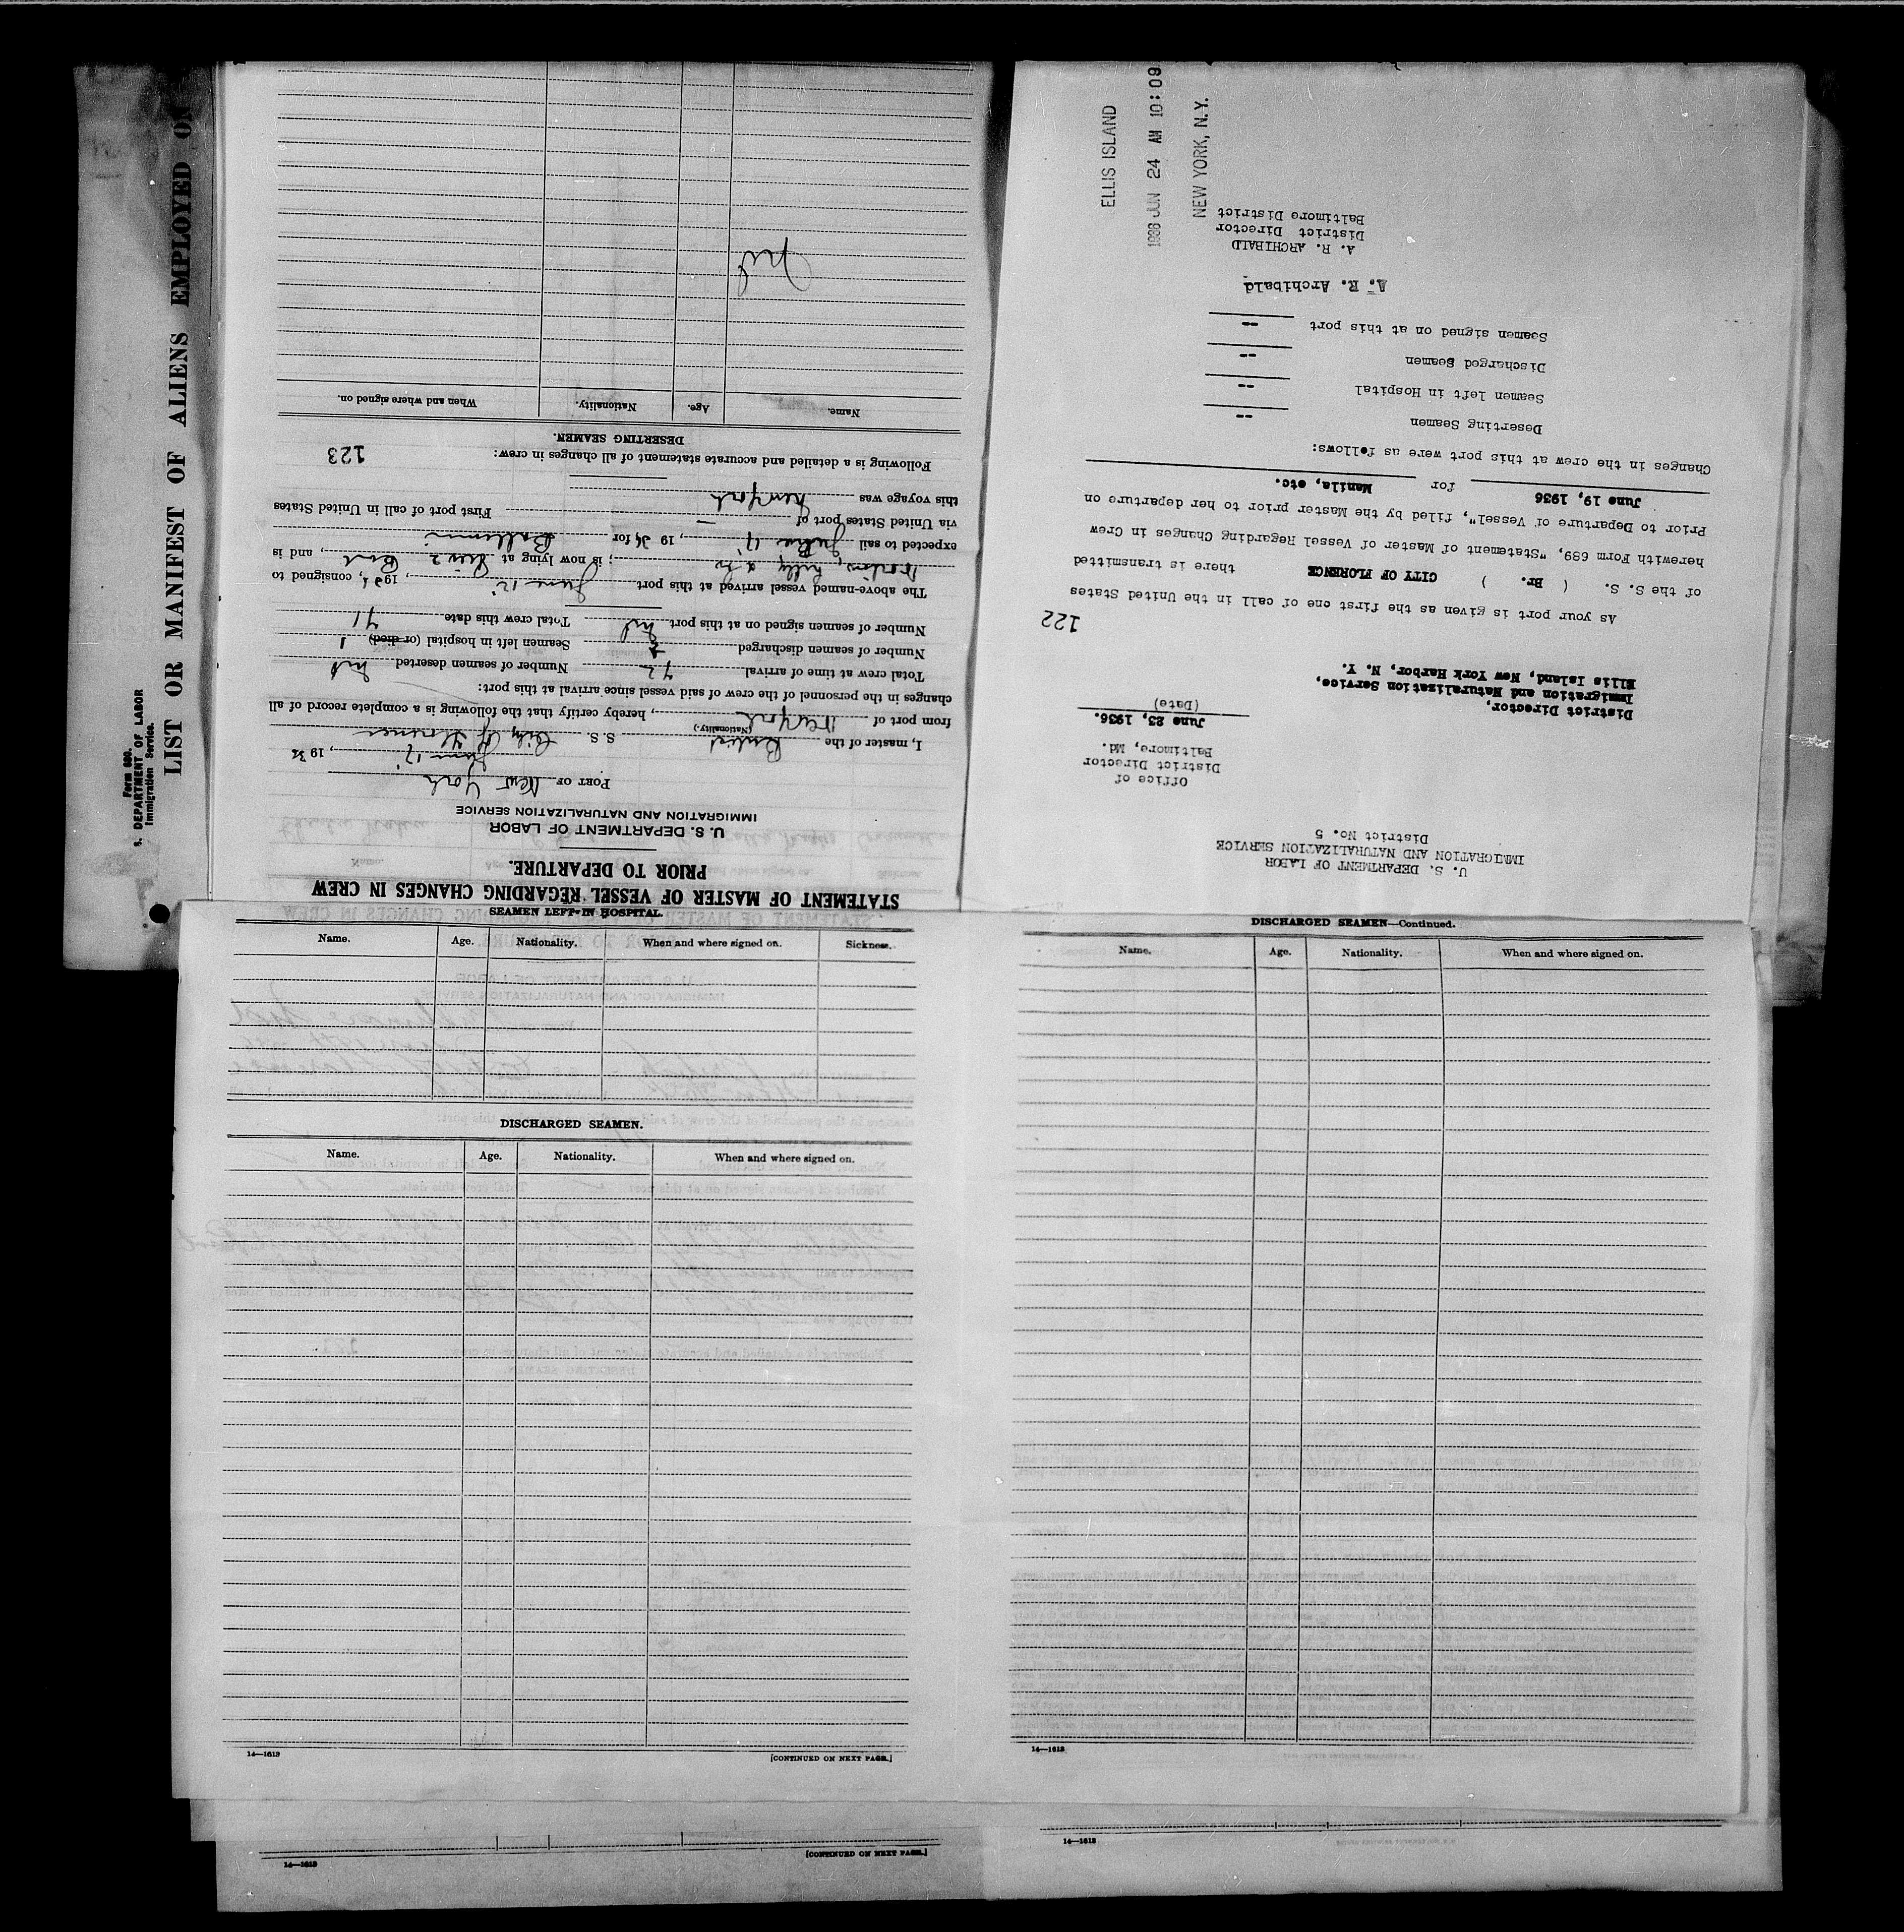 Form 680.
S. DEPARTMENT OF LABOR
Immigration Service.
LIST OR MANIFEST OF ALIENS EMPLOYED ON
STATEMENT OF MASTER OF VESSEL REGARDING CHANGES IN CREW
PRIOR TO DEPARTURE.
U. S. DEPARTMENT OF LABOR
IMMIGRATION AND NATURALIZATION SERVICE
PORT OF New York
June 17, 1936
I, master of the British S. S. City of Florence
(Nationality.)
from port of New York, hereby certify that the following is a complete record of all
changes in the personnel of the crew of said vessel since arrival at this port:
Total crew at time of arrival 72 Number of seamen deserted nil
Number of seamen discharged Seamen left in hospital (or died) 1
Number of seamen signed on at this port nil Total crew this date 71
The above-named vessel arrived at this port June 12, 1936, consigned to
Norton, Lilly & Co; is now lying at Pier 2, and is
expected to sail June 17, 1936 for Baltimore
via United States port of — First port of call in United States
this voyage was New York
Following is a detailed and accurate statement of all changes in crew: 123
DESERTING SEAMEN.
Name. Age. Nationality. When and where signed on.
Nil
U. S. DEPARTMENT OF LABOR
IMMIGRATION AND NATURALIZATION SERVICE
District No. 5
Office of
District Director
Baltimore, Md.
June 23, 1936.
(Date)
District Director,
Immigration and Naturalization Service,
Ellis Island, New York Harbor, N. Y.
122
As your port is given as the first one of call in the United States
of the S. S. ( Br. ) CITY OF FLORENCE there is transmitted
herewith Form 689, "Statement of Master of Vessel Regarding Changes in Crew
Prior to Departure of Vessel", filed by the Master prior to her departure on
June 19, 1936 for Manila, etc.
Changes in the crew at this port were as follows:
Deserting Seamen --
Seamen left in Hospital --
Discharged Seamen --
Seamen signed on at this port --
A. R. Archibald
A. R. ARCHIBALD
District Director
Baltimore District
ELLIS ISLAND
1936 JUN 24 AM 10:09
NEW YORK, N.Y.
SEAMEN LEFT IN HOSPITAL.
Name. Age. Nationality. When and where signed on. Sickness.
DISCHARGED SEAMEN.
Name. Age. Nationality. When and where signed on.
14—1613 [CONTINUED ON NEXT PAGE.]
DISCHARGED SEAMEN—Continued.
Name. Age. Nationality. When and where signed on.
14—1613
14—1613 [CONTINUED ON NEXT PAGE.]
14—1613